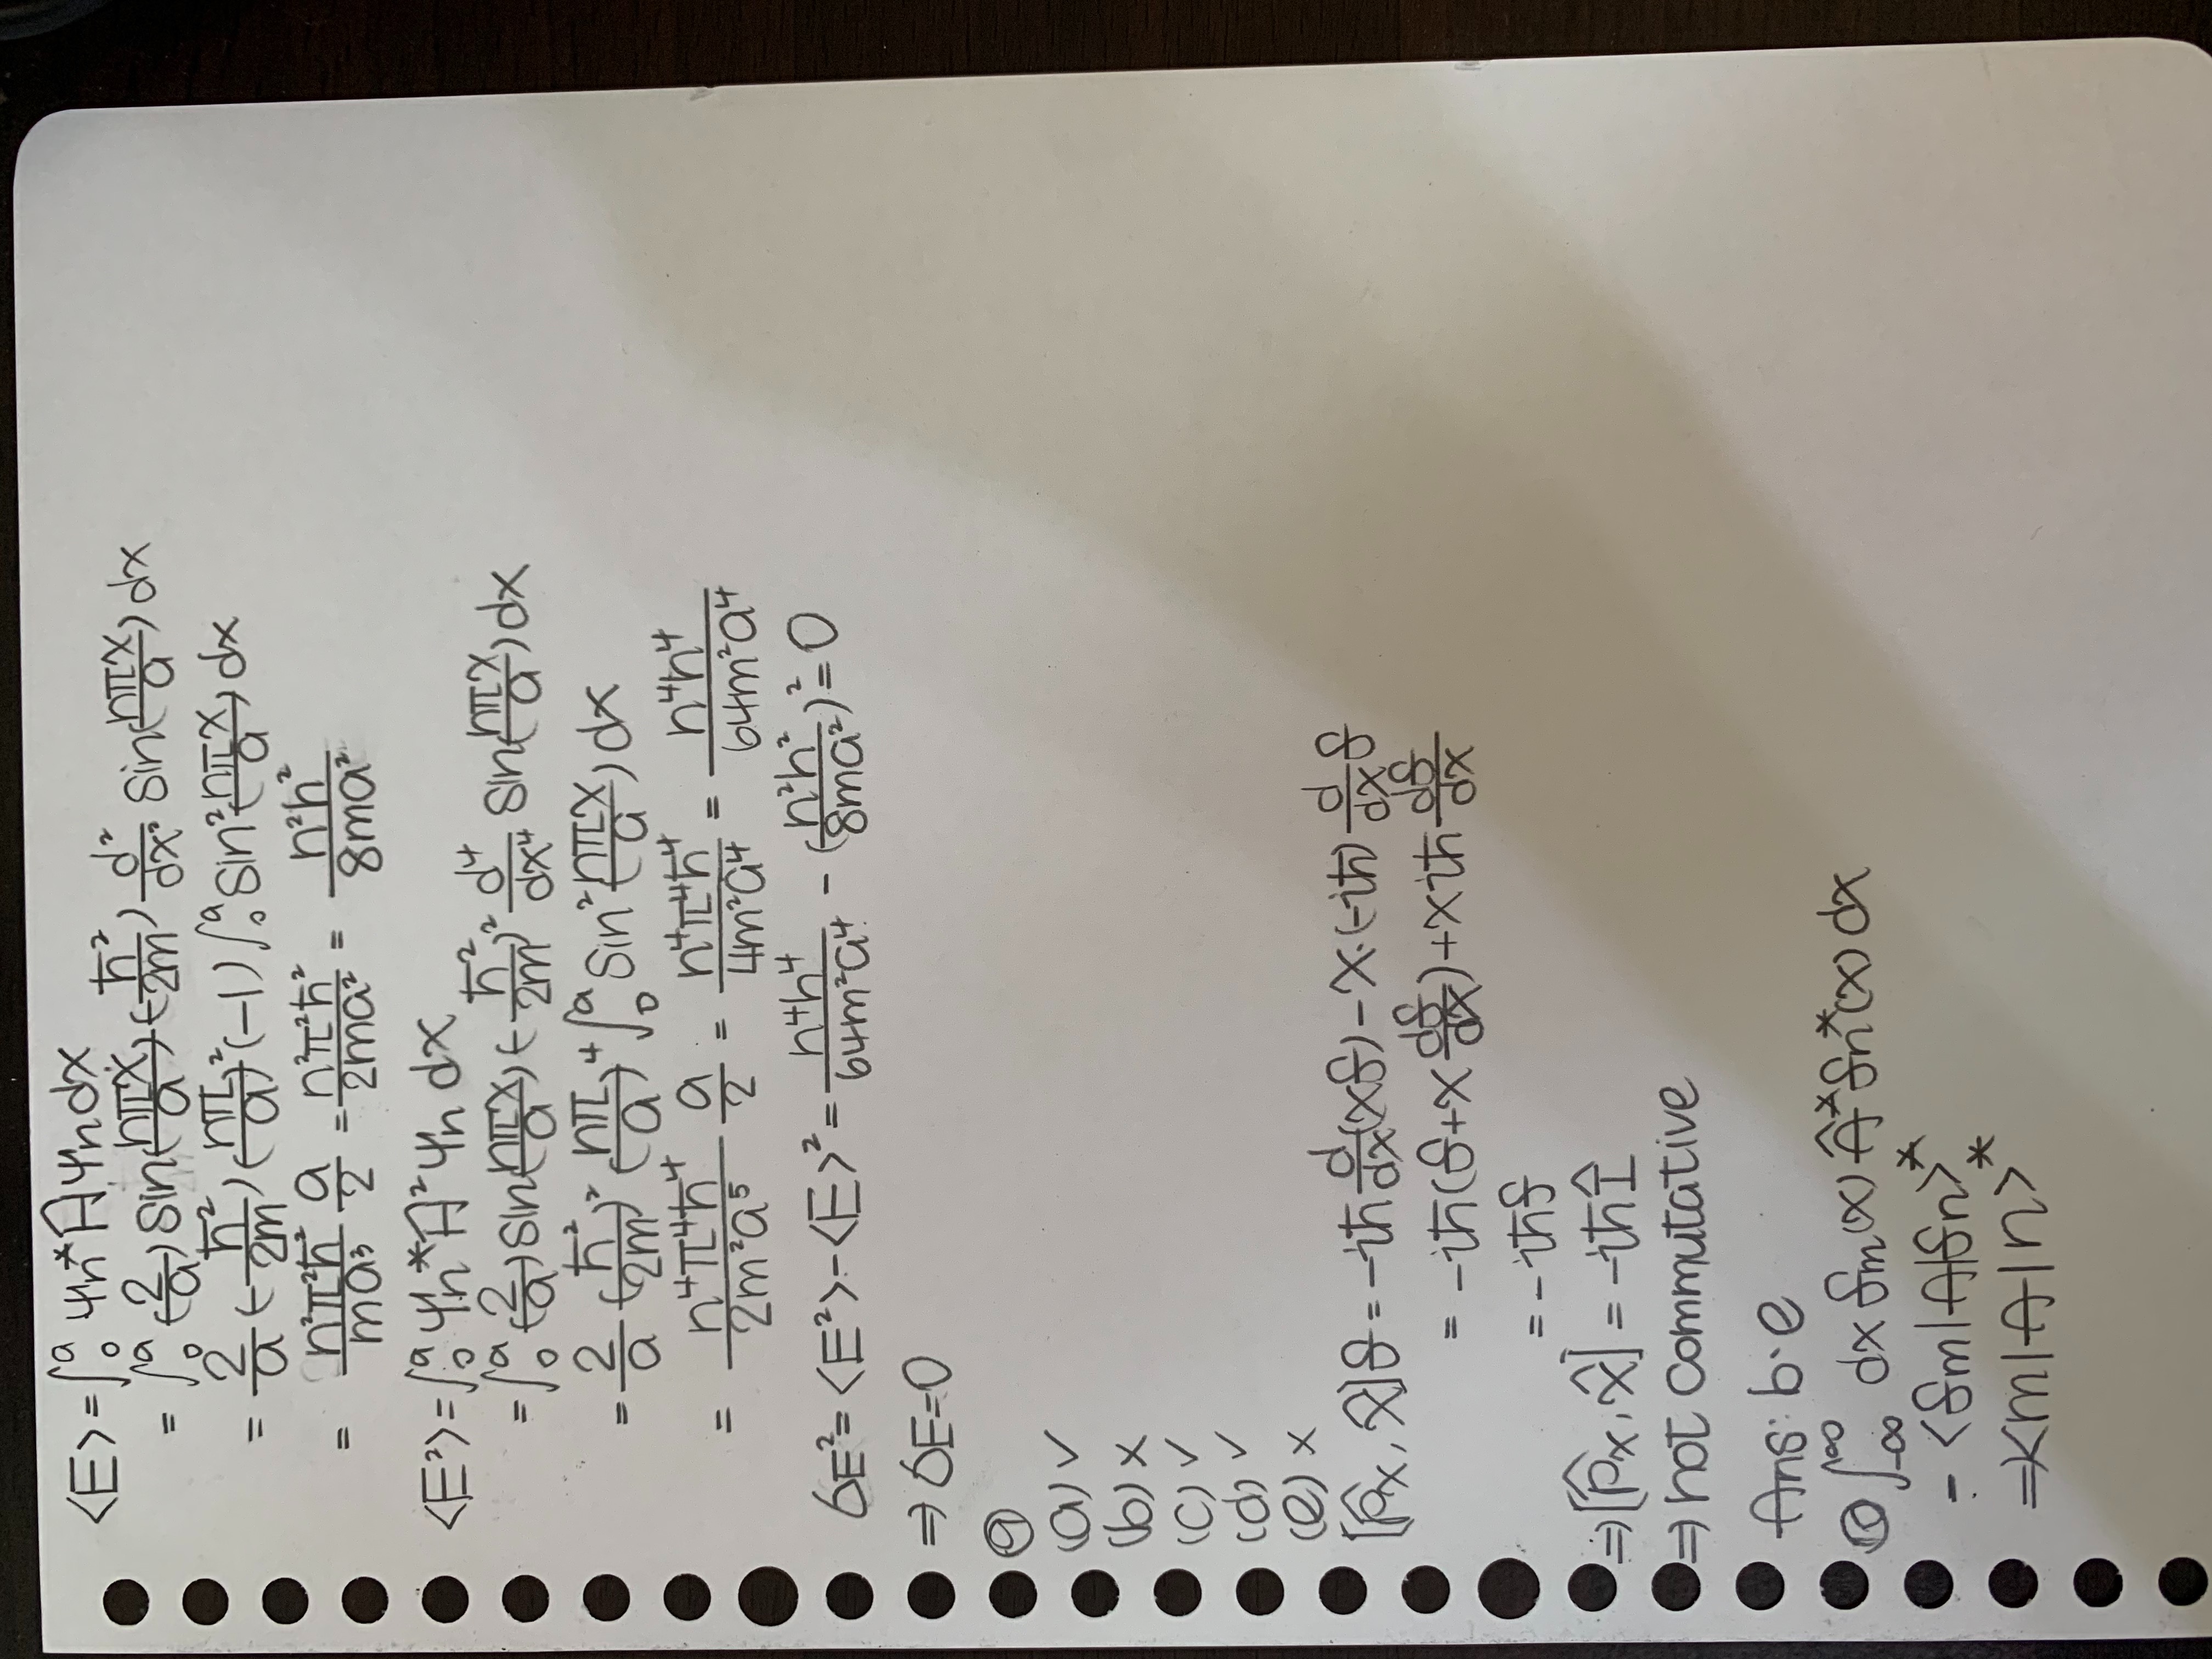 <E> = ∫₀ᵃ ψn* Ĥ ψn dx
= ∫₀ᵃ (2/a) sin(nπx/a) (-ħ²/2m) d²/dx² sin(nπx/a) dx
= 2/a (-ħ²/2m) (nπ/a)² (-1) ∫₀ᵃ sin²(nπx/a) dx
= n²π²ħ²/ma³ a/2 = n²π²ħ²/2ma² = n²h²/8ma²
<E²> = ∫₀ᵃ ψn* Ĥ² ψn dx
= ∫₀ᵃ (2/a) sin(nπx/a) (-ħ²/2m)² d⁴/dx⁴ sin(nπx/a) dx
= 2/a (ħ²/2m)² (nπ/a)⁴ ∫₀ᵃ sin²(nπx/a) dx
= n⁴π⁴ħ⁴/2m²a⁵ a/2 = n⁴π⁴ħ⁴/4m²a⁴ = n⁴h⁴/64m²a⁴
σE² = <E²> - <E>² = n⁴h⁴/64m²a⁴ - (n²h²/8ma²)² = 0
⇒ σE = 0
⑨
(a) ✓
(b) ×
(c) ✓
(d) ✓
(e) ×
[p̂x, x̂]f = -iħ d/dx(xf) - x·(-iħ) d/dx f
= -iħ(f + x df/dx) + xiħ df/dx
= -iħf
⇒ [p̂x, x̂] = -iħÎ
⇒ not commutative
Ans: b.e
⑩ ∫₋∞^∞ dx fm(x) Â* fn*(x) dx
= <fm|A|fn>*
= <m|A|n>*